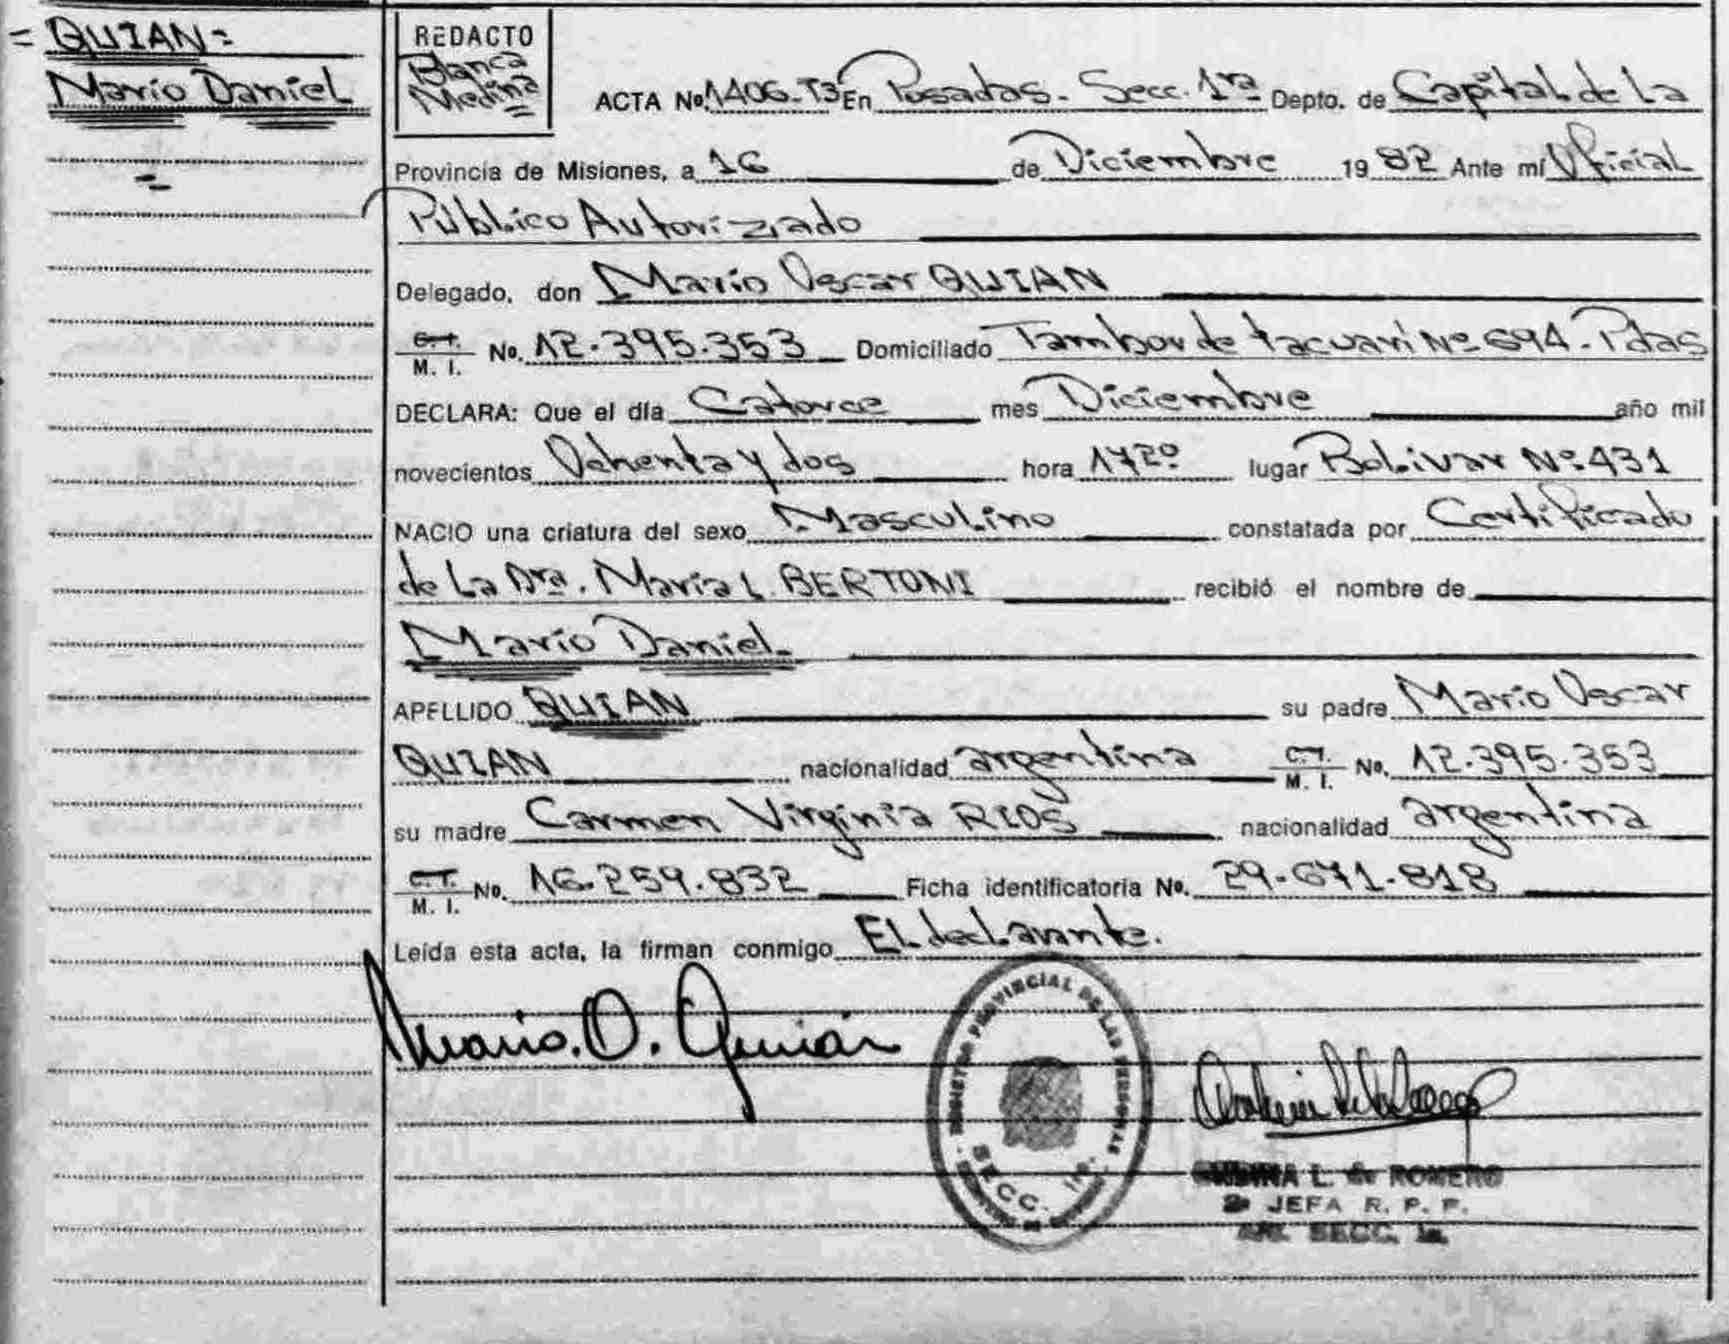 = QUIAN =
Mario Daniel
REDACTO
Blanca
Medina
ACTA Nº 1406-T3 En Posadas - Secc. 1ra Depto. de Capital de la
Provincia de Misiones, a 16 de Diciembre 1982 Ante mí Oficial
Público Autorizado
Delegado, don Mario Oscar QUIAN
C.I. M. I. No. 12.395.353 Domiciliado Tambor de Tacuari Nº 694 - Pdas
DECLARA: Que el día Catorce mes Diciembre año mil
novecientos Ochenta y dos hora 17 20 lugar Bolivar Nº 431
NACIO una criatura del sexo Masculino constatada por Certificado
de La Dra. Maria L. BERTONI recibió el nombre de
Mario Daniel
APELLIDO QUIAN su padre Mario Oscar
QUIAN nacionalidad argentina C.I. M. I. No. 12.395.353
su madre Carmen Virginia RIOS nacionalidad argentina
C.I. M. I. No. 16.259.832 Ficha identificatoria No. 29-671-818
Leída esta acta, la firman conmigo EL declarante.
Mario. O. Quian
REGISTRO PROVINCIAL DE LAS PERSONAS
SECC. 1ra.
L. de ROMERO
JEFA R. P. P.
SECC. 1a.